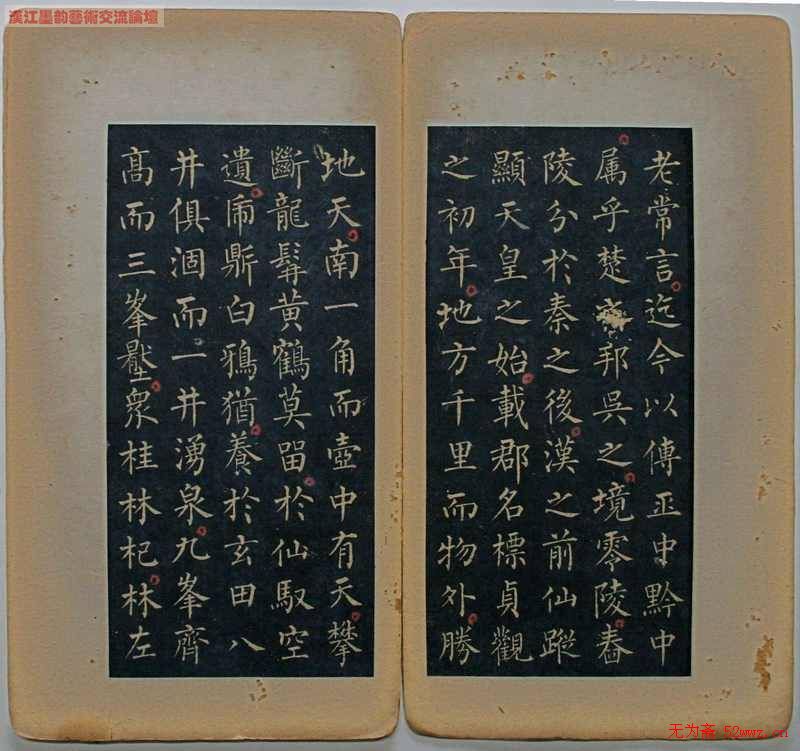 漢江墨韵藝術交流論壇
老常言迄今以傳中黔中
属乎楚邦吳之境零陵舂
陵分於秦之後漢之前仙蹤
顯天皇之始載郡名標貞觀
之初年地方千里而物外勝
地天南一角而壺中有天攀
斷龍髯黃鶴莫留於仙馭空
遺鼎白鴉猶養於玄田八
井俱涸而一井湧泉九峯齊
高而三峯壓眾桂林杞林左
无为斋 52wwz.cn